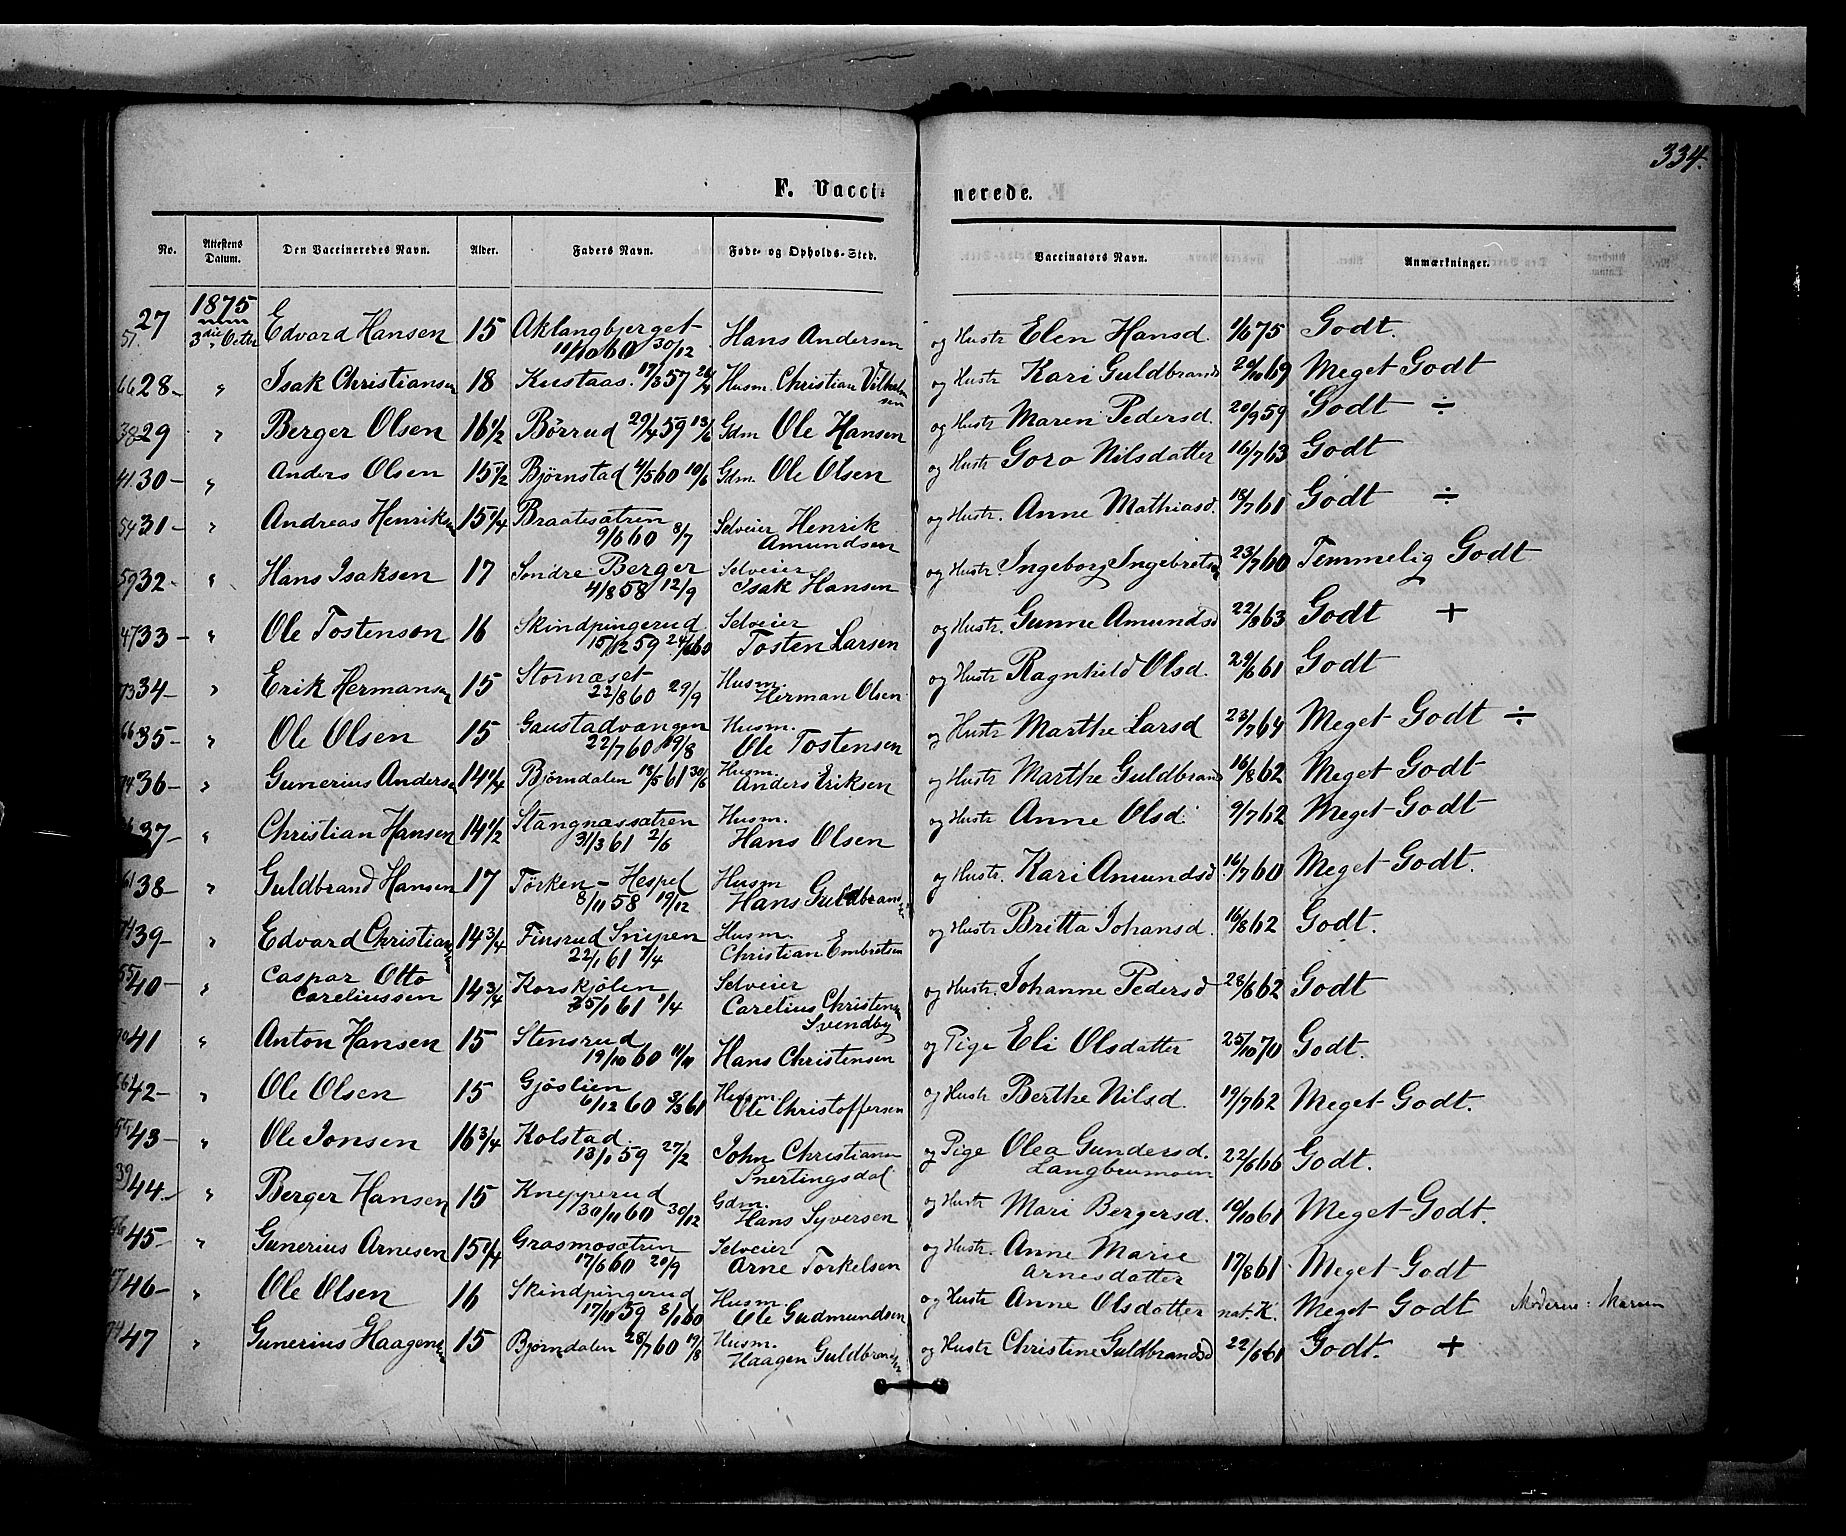 334.
F. Vacci- nerede.
No. Attestens Datum. Den Vaccineredes Navn. Alder. Faders Navn. Føde- og Opholds-Sted. Vaccinators Navn. Anmærkninger.
1875
27 3die Octbr Edvard Hansen 15 Aklangbjerget Hans Andersen og Hustr Elen Hansd. 1/6 75 Godt.
51. 11/10 60 30/12
66 28 - " Isak Christiansen 18 Kustaas. 17/3 57 Husm. Christian Vilhelmsen og Hustr Kari Guldbrands 20/10 69 Meget Godt
38 29 " Berger Olsen 16 1/2 Børrud 29/4 59 13/6 Gdm Ole Hansen og Hustr Maren Pedersd. 20/9 59 Godt ÷
41. 30 - " Anders Olsen 15 1/2 Bjørnstad 4/5 60 10/6 Gdm. Ole Olsen og Hustr Goro Nilsdatter 16/7 63 Godt
54 31 - " Andreas Henriksen 15 1/4 Braatesætren Selveier Henrik og Hustr. Anne Mathiasd. 18/7 61 Godt ÷
9/6 60 8/7 Amundsen
59 32 - " Hans Isaksen 17 Søndre Berger Selveier og Hustr. Ingeborg Ingebretsd 23/7 60 Temmelig Godt
4/8 58 12/9 Isak Hansen
47 33 - " Ole Tostenson 16 Skindpingerud Selveier og Hustr. Gunne Amundsd 22/8 63 Godt +
15/12 59 24/6 60 Tosten Larsen
73 34 - " Erik Hermansen 15 Stornæset Husm. og Hustr Ragnhild Olsd. 29/6 61 Godt
22/8 60 29/9 Herman Olsen
66 35 - " Ole Olsen 15 Gaustadvangen Husm. og Hustr Marthe Larsd 23/7 64 Meget Godt ÷
22/7 60 19/8 Ole Tostensen
74 36 - " Gunerius Andersen 14 1/4 Bjørndalen 18/5 61 30/6 Husm. og Hustr Marthe Guldbrand 16/8 62 Meget Godt
Anders Eriksen
37 - " Christian Hansen 14 1/2 Stangnæssætren Husm. og Hustr Anne Olsd. 9/7 62 Meget Godt
31/3 61 2/6 Hans Olsen
61 38 - " Guldbrand Hansen 17 Tørken - Hespel Husm og Hustr. Kari Amundsd 16/7 60 Meget Godt.
8/11 58 19/12 Hans Guldbrandsen
74 39 - " Edvard Christiansen 14 3/4 Finsrud Snipen Husm. og Hustr Britta Johansd. 16/8 62 Godt.
22/1 61 7/4 Christian Embretsen
55 40 - " Caspar Otto 14 3/4 Korskjølen Selveier og Hustr. Johanne Pedersd 28/6 62 Godt
Careliussen 25/1 61 1/4 Carelius Christensen
Svendby
41 " Anton Hansen 15 Stensrud og Pige Eli Olsdatter 25/10 70 Godt.
19/10 60 11/11 Hans Christensen
42 - " Ole Olsen 15 Gjøslien Husm og Hustr Berthe Nilsd. 19/7 62 Meget Godt.
6/12 60 3/3 61 Ole Christoffersen
43 - " Ole Jonsen 16 3/4 Kolstad og Pige Olea Gundersd. 22/6 66 Godt.
13/1 59 27/2 John Christiansen Langbrumoen
Snertingsdal
39 44 - " Berger Hansen 15 Knepperud Gdm. og Hustr Mari Bergersd. 19/10 61 Meget Godt.
30/11 60 30/12 Hans Syversen
45 - " Gunerius Arnesen 15 1/4 Grasmosætren Selveier og Hustr. Anne Marie 17/8 61 Meget Godt
17/6 60 20/9 Arne Torkelsen Arnesdatter
46 - " Ole Olsen 16 Skindpingerud Husm. og Hustr Anne Olsdatter nat. K. Meget Godt Moderen: Maren
17/11 59 8/1 60 Ole Gudmundsen
47 " Gunerius Haagensen 15 Bjørndalen 28/7 60 19/8 Husm. og Hustr Christine Guldbrandsd 22/6 61 Godt. +
Haagen Guldbrandsen